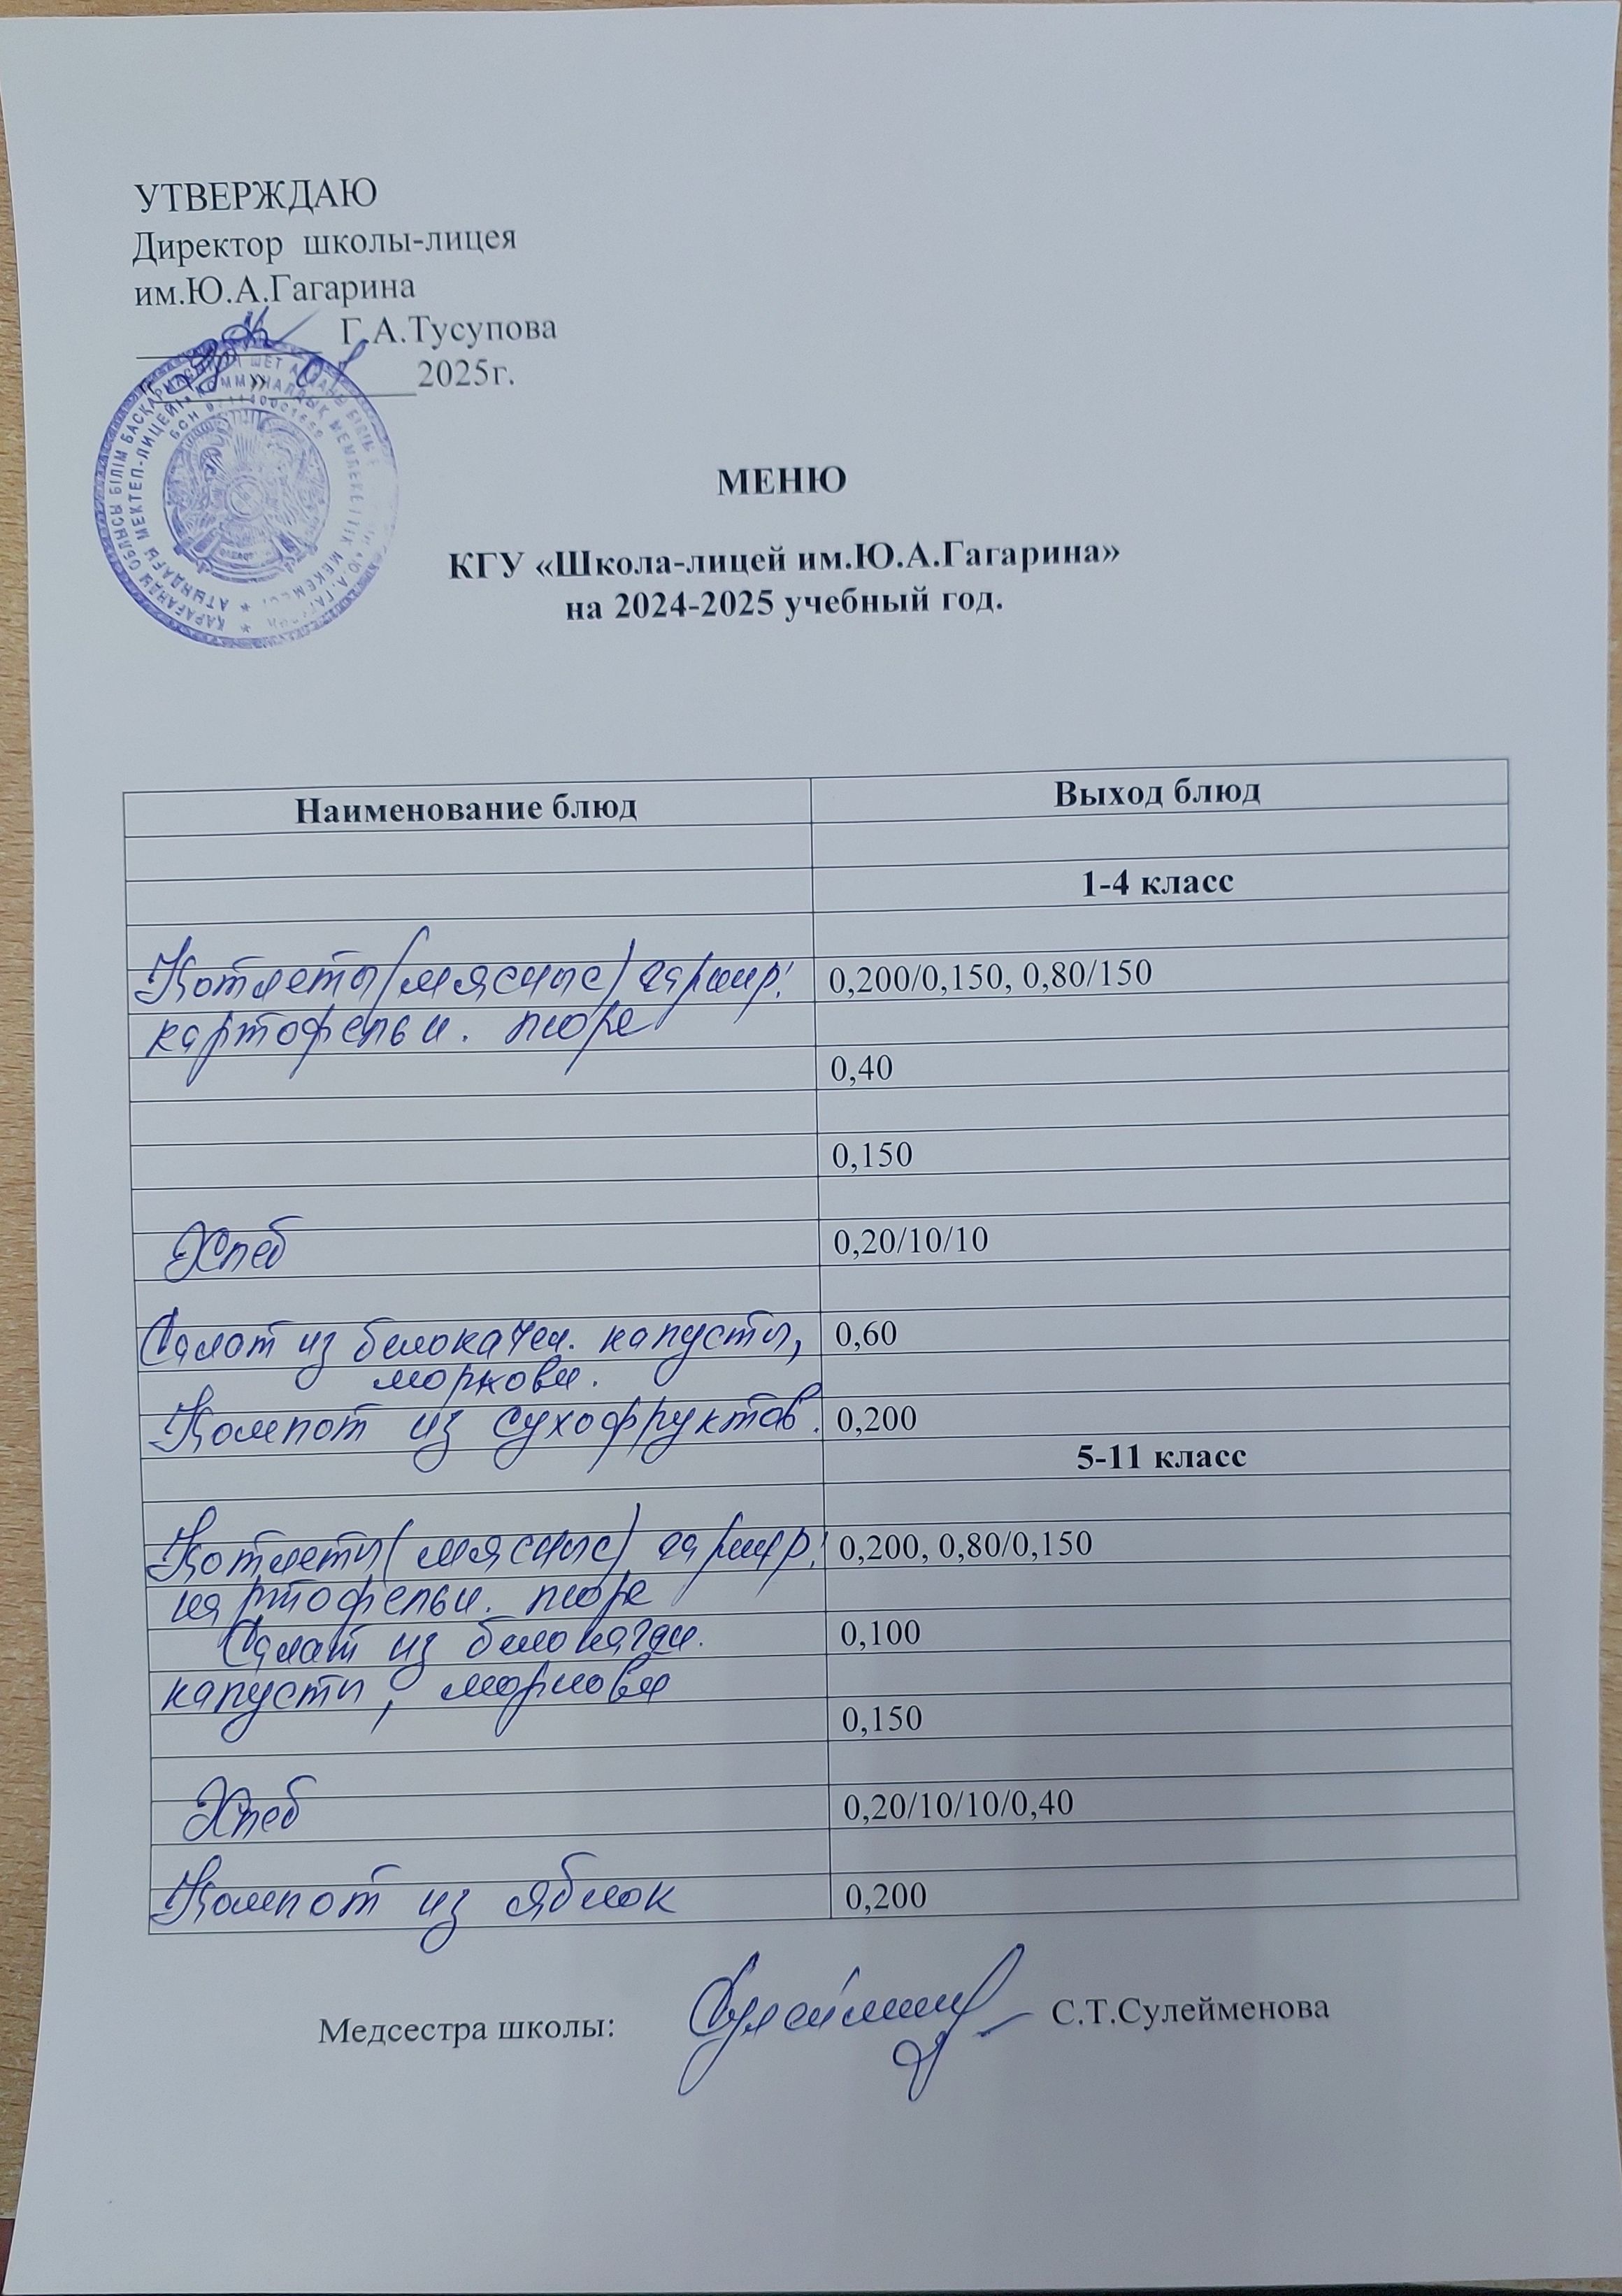 УТВЕРЖДАЮ
Директор школы-лицея
им.Ю.А.Гагарина
Г.А.Тусупова
» 01 2025г.
МЕНЮ
КГУ «Школа-лицей им.Ю.А.Гагарина»
на 2024-2025 учебный год.
Наименование блюд Выход блюд
1-4 класс
Котлеты (мясные) гарнир: 0,200/0,150, 0,80/150
картофельн. пюре
0,40
0,150
Хлеб 0,20/10/10
Салат из белокачан. капусты, 0,60
моркови.
Компот из сухофруктов. 0,200
5-11 класс
Котлеты (мясные) гарнир: 0,200, 0,80/0,150
картофельн. пюре
Салат из белокачан. 0,100
капусты, моркови
0,150
Хлеб 0,20/10/10/0,40
Компот из яблок 0,200
Медсестра школы: С.Т.Сулейменова